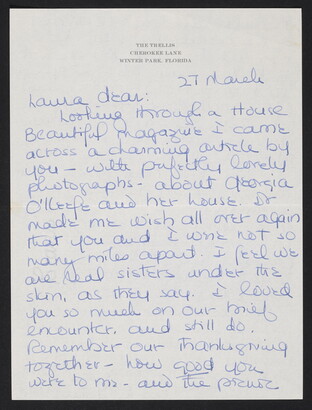 THE TRELLIS
CHEROKEE LANE
WINTER PARK, FLORIDA
27 March
Laura dear:
Looking through a House
Beautiful magazine I came
across a charming article by
you - with perfectly lovely
photographs - about Georgia
O'Keefe and her house. It
made me wish all over again
that you and I were not so
many miles apart. I feel we
are real sisters under the
skin, as they say. I loved
you so much on our brief
encounter, and still do.
Remember our Thanksgiving
together - how good you
were to me - and the picnic